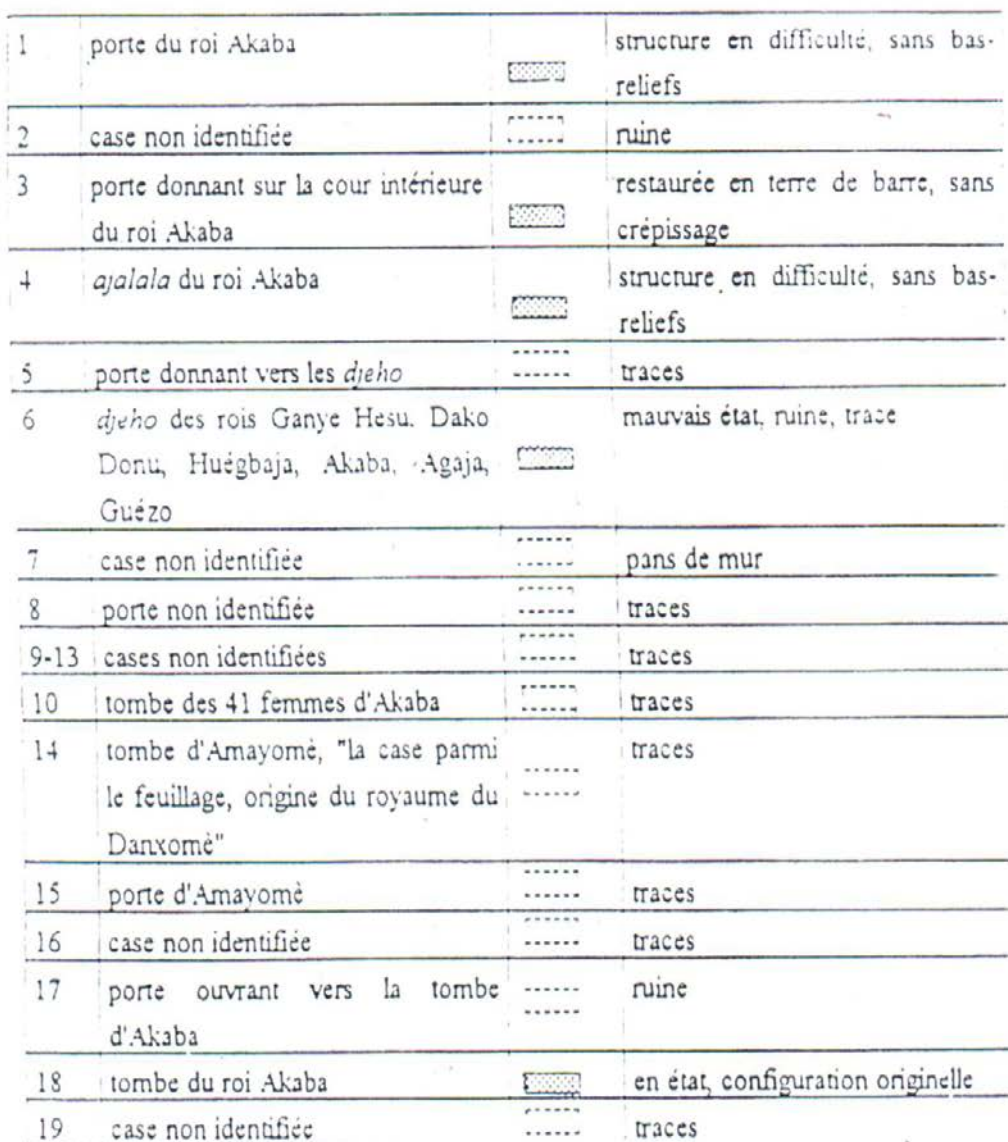 1 porte du roi Akaba structure en difficulté, sans bas-
reliefs
2 case non identifiée ruine
3 porte donnant sur la cour intérieure restaurée en terre de barre, sans
du roi Akaba crépissage
4 ajalala du roi Akaba structure en difficulté, sans bas-
reliefs
5 porte donnant vers les djeho traces
6 djeho des rois Ganye Hesu. Dako mauvais état, ruine, trace
Donu, Huégbaja, Akaba, Agaja,
Guézo
7 case non identifiée pans de mur
8 porte non identifiée traces
9-13 cases non identifiées traces
10 tombe des 41 femmes d'Akaba traces
14 tombe d'Amayomè, "la case parmi traces
le feuillage, origine du royaume du
Danxomè"
15 porte d'Amayomè traces
16 case non identifiée traces
17 porte ouvrant vers la tombe ruine
d'Akaba
18 tombe du roi Akaba en état, configuration originelle
19 case non identifiée traces